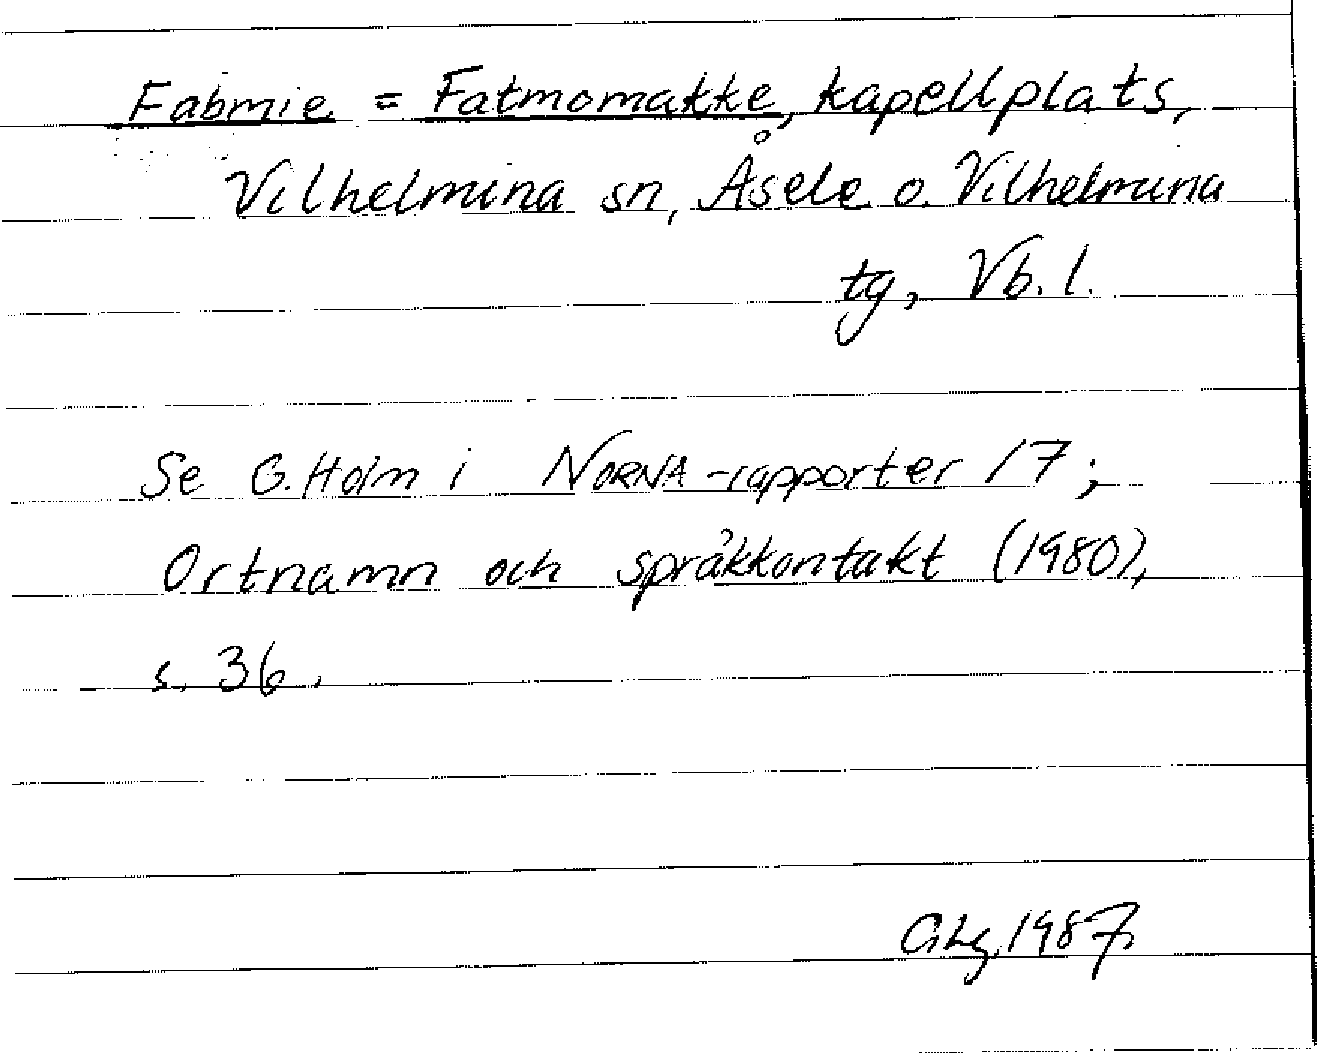 Fabmie = Fatmomakke, kapellplats,
Vilhelmina sn, Åsele o. Vilhelmina
tg, Vb. l.
Se G. Holm i NORNA-rapporter 17;
Ortnamn och språkkontakt (1980),
s. 36.
GLg, 1987